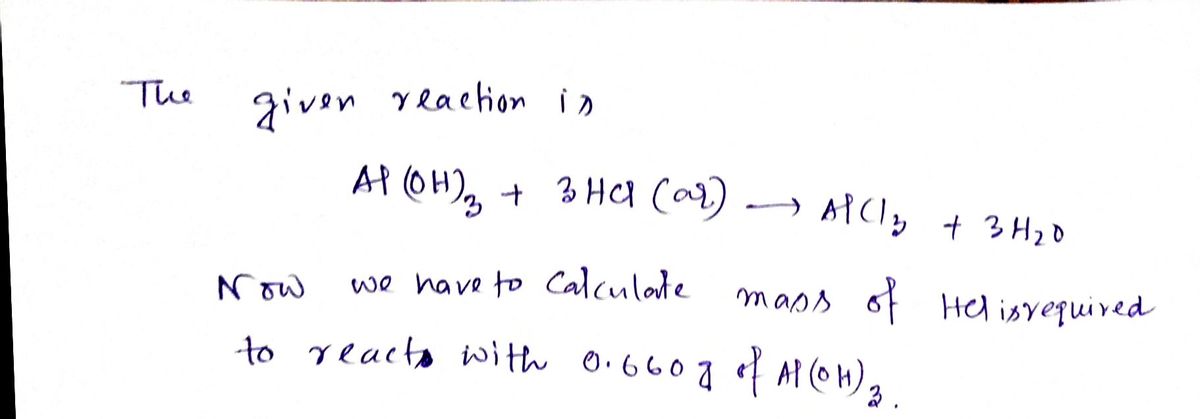 The given reaction is
Al(OH)₃ + 3HCl (aq) → AlCl₃ + 3H₂O
Now we have to Calculate mass of HCl is required
to reacts with 0.660 g of Al(OH)₃.